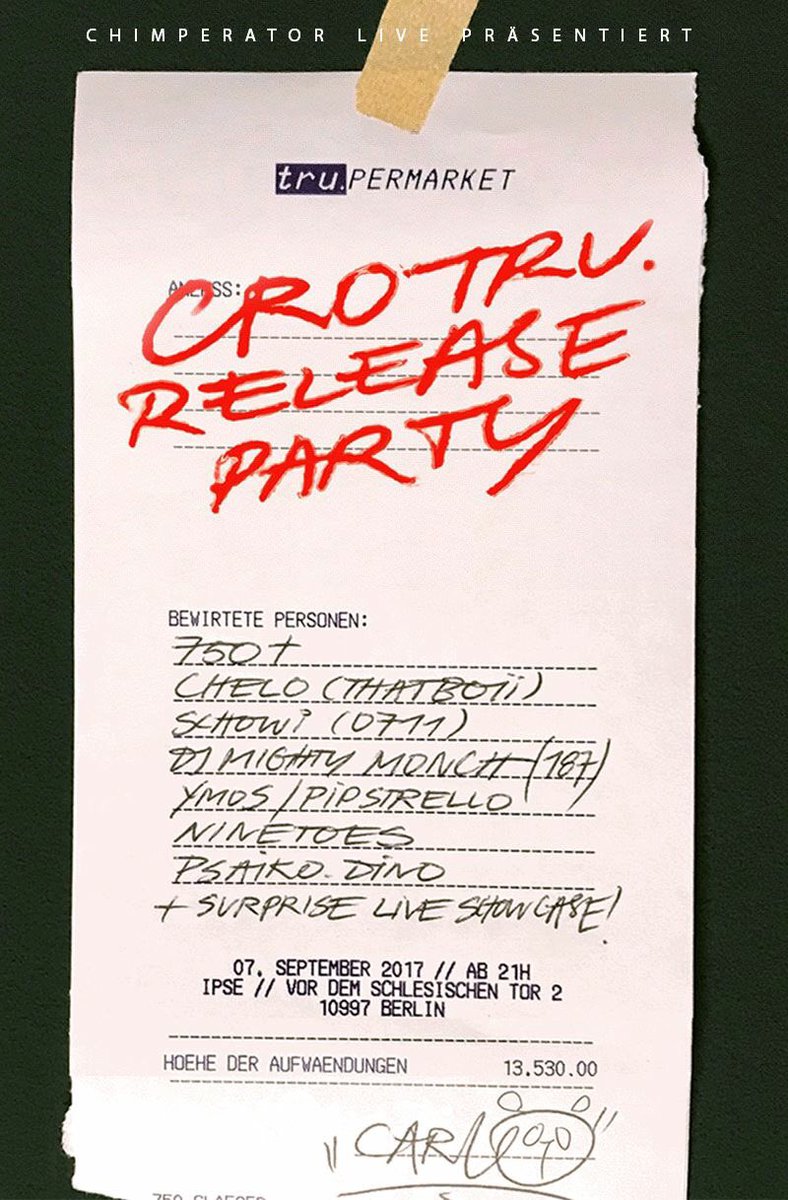 CHIMPERATOR LIVE PRÄSENTIERT
tru.PERMARKET
CRO TRU.
RELEASE
PARTY
BEWIRTETE PERSONEN:
750+
CHELO (THATBOii)
SCHOWi (0711)
DJ MIGHTY MONCH (187)
YMOS / PiPSTRELLO
NINETOES
PSAIKO.DiNO
+ SURPRISE LIVE SHOWCASE!
07. SEPTEMBER 2017 // AB 21H
IPSE // VOR DEM SCHLESISCHEN TOR 2
10997 BERLIN
HOEHE DER AUFWAENDUNGEN 13.530.00